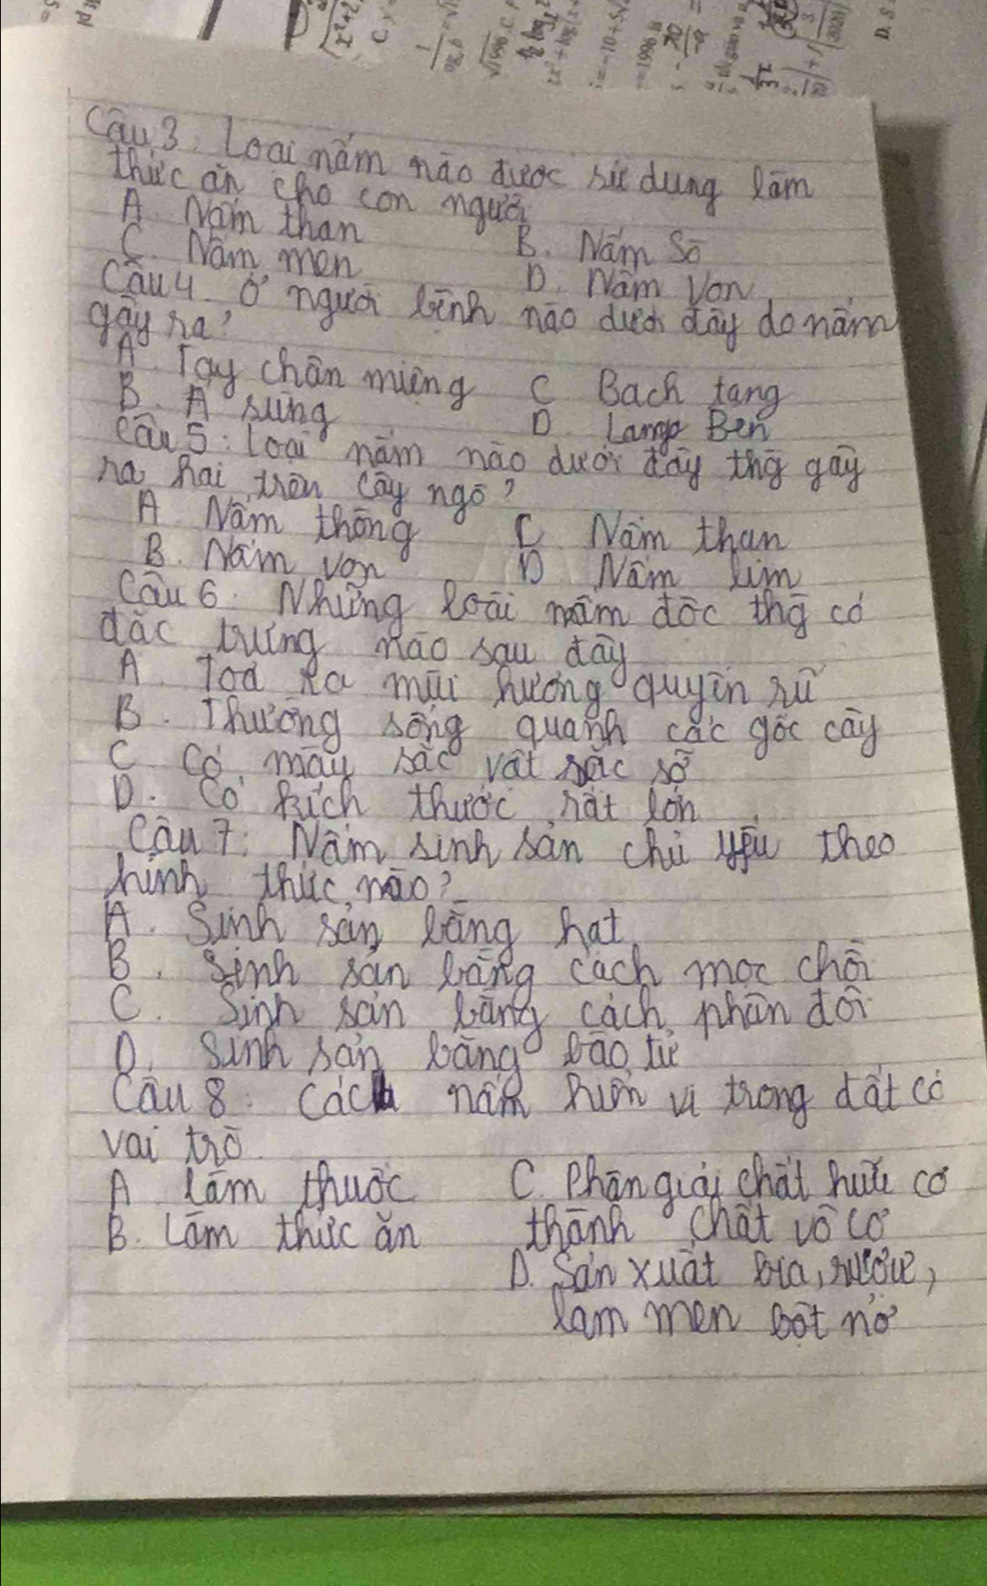 Câu 3: Loại nấm nào được sử dụng làm
thức ăn cho con người
A. Nấm than
B. Nấm Sò
C. Nấm men
D. Nấm Von
Câu 4. Ở người bệnh nào dưới đây do nấm
gây ra?
A. Tay chân miệng
C. Bạch tạng
B. Á sừng
D. Lang Ben
Câu 5: Loại nấm nào dưới đây thg gây
ra hại trên cây ngô?
A. Nấm thông
C Nấm than
B. Nấm von
D Nấm lim
Câu 6. Những loài nấm độc thg có
đặc trưng nào sau đây
A. Toả ra mùi hương quyến rũ
B. Thường sống quanh các gốc cây
C. Có màu sắc vất sặc sỡ
D. Có kích thước rất lớn
Câu 7: Nấm sinh sản chủ yếu theo
hình thức nào?
A. Sinh sản bằng hạt
B. Sinh sản bằng cách mọc chồi
C. Sinh sản bằng cách phân đôi
D. Sinh sản bằng bào tử
Câu 8: Các nấm hiển vi trong đất có
vai trò
A làm thuốc
C. Phân giải chất hữu cơ
B. Làm thức ăn
thành chất vô cơ
D. Sản xuất bia, rượu,
làm men bột nở